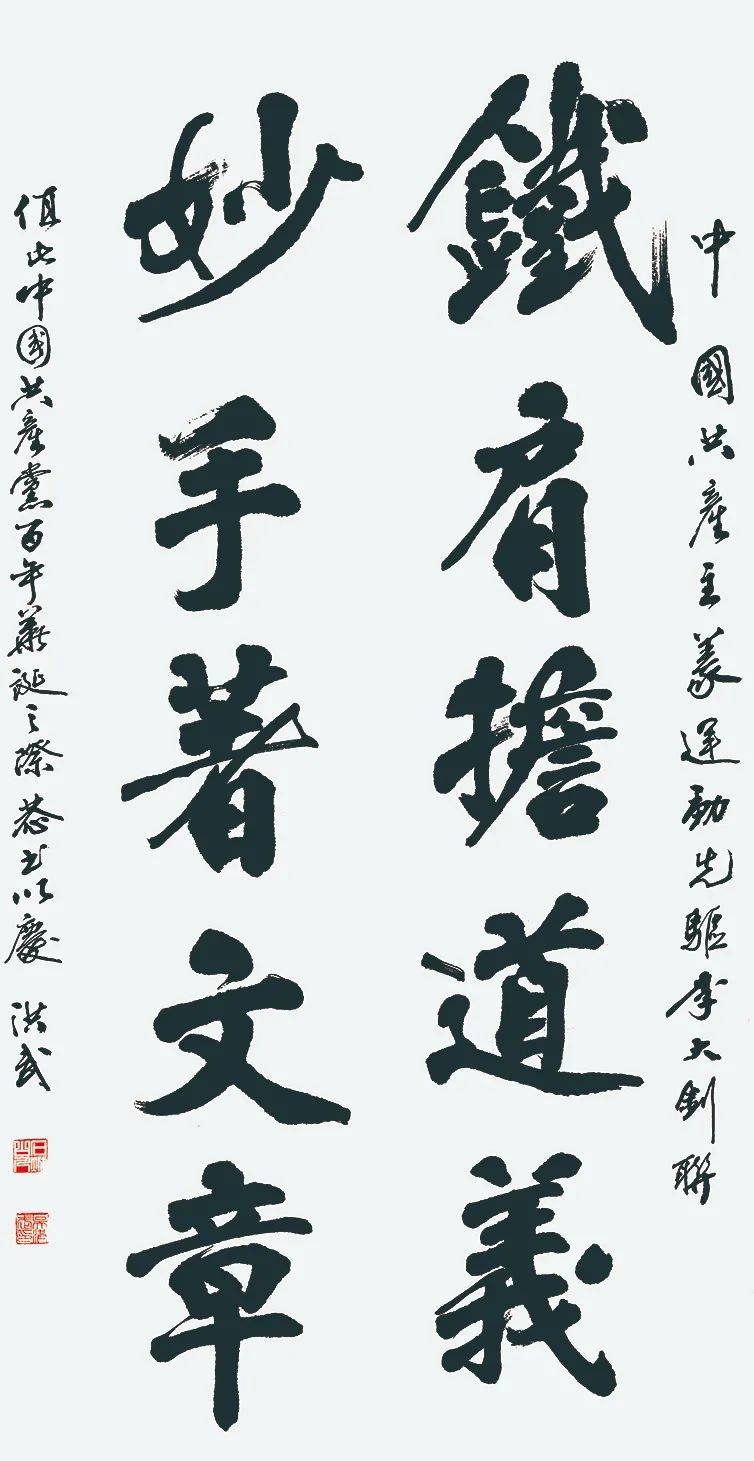 中國共産主義運動先驅李大釗聯
鐵肩擔道義
妙手著文章
值此中國共産黨百年華誕之際恭書以慶 洪武